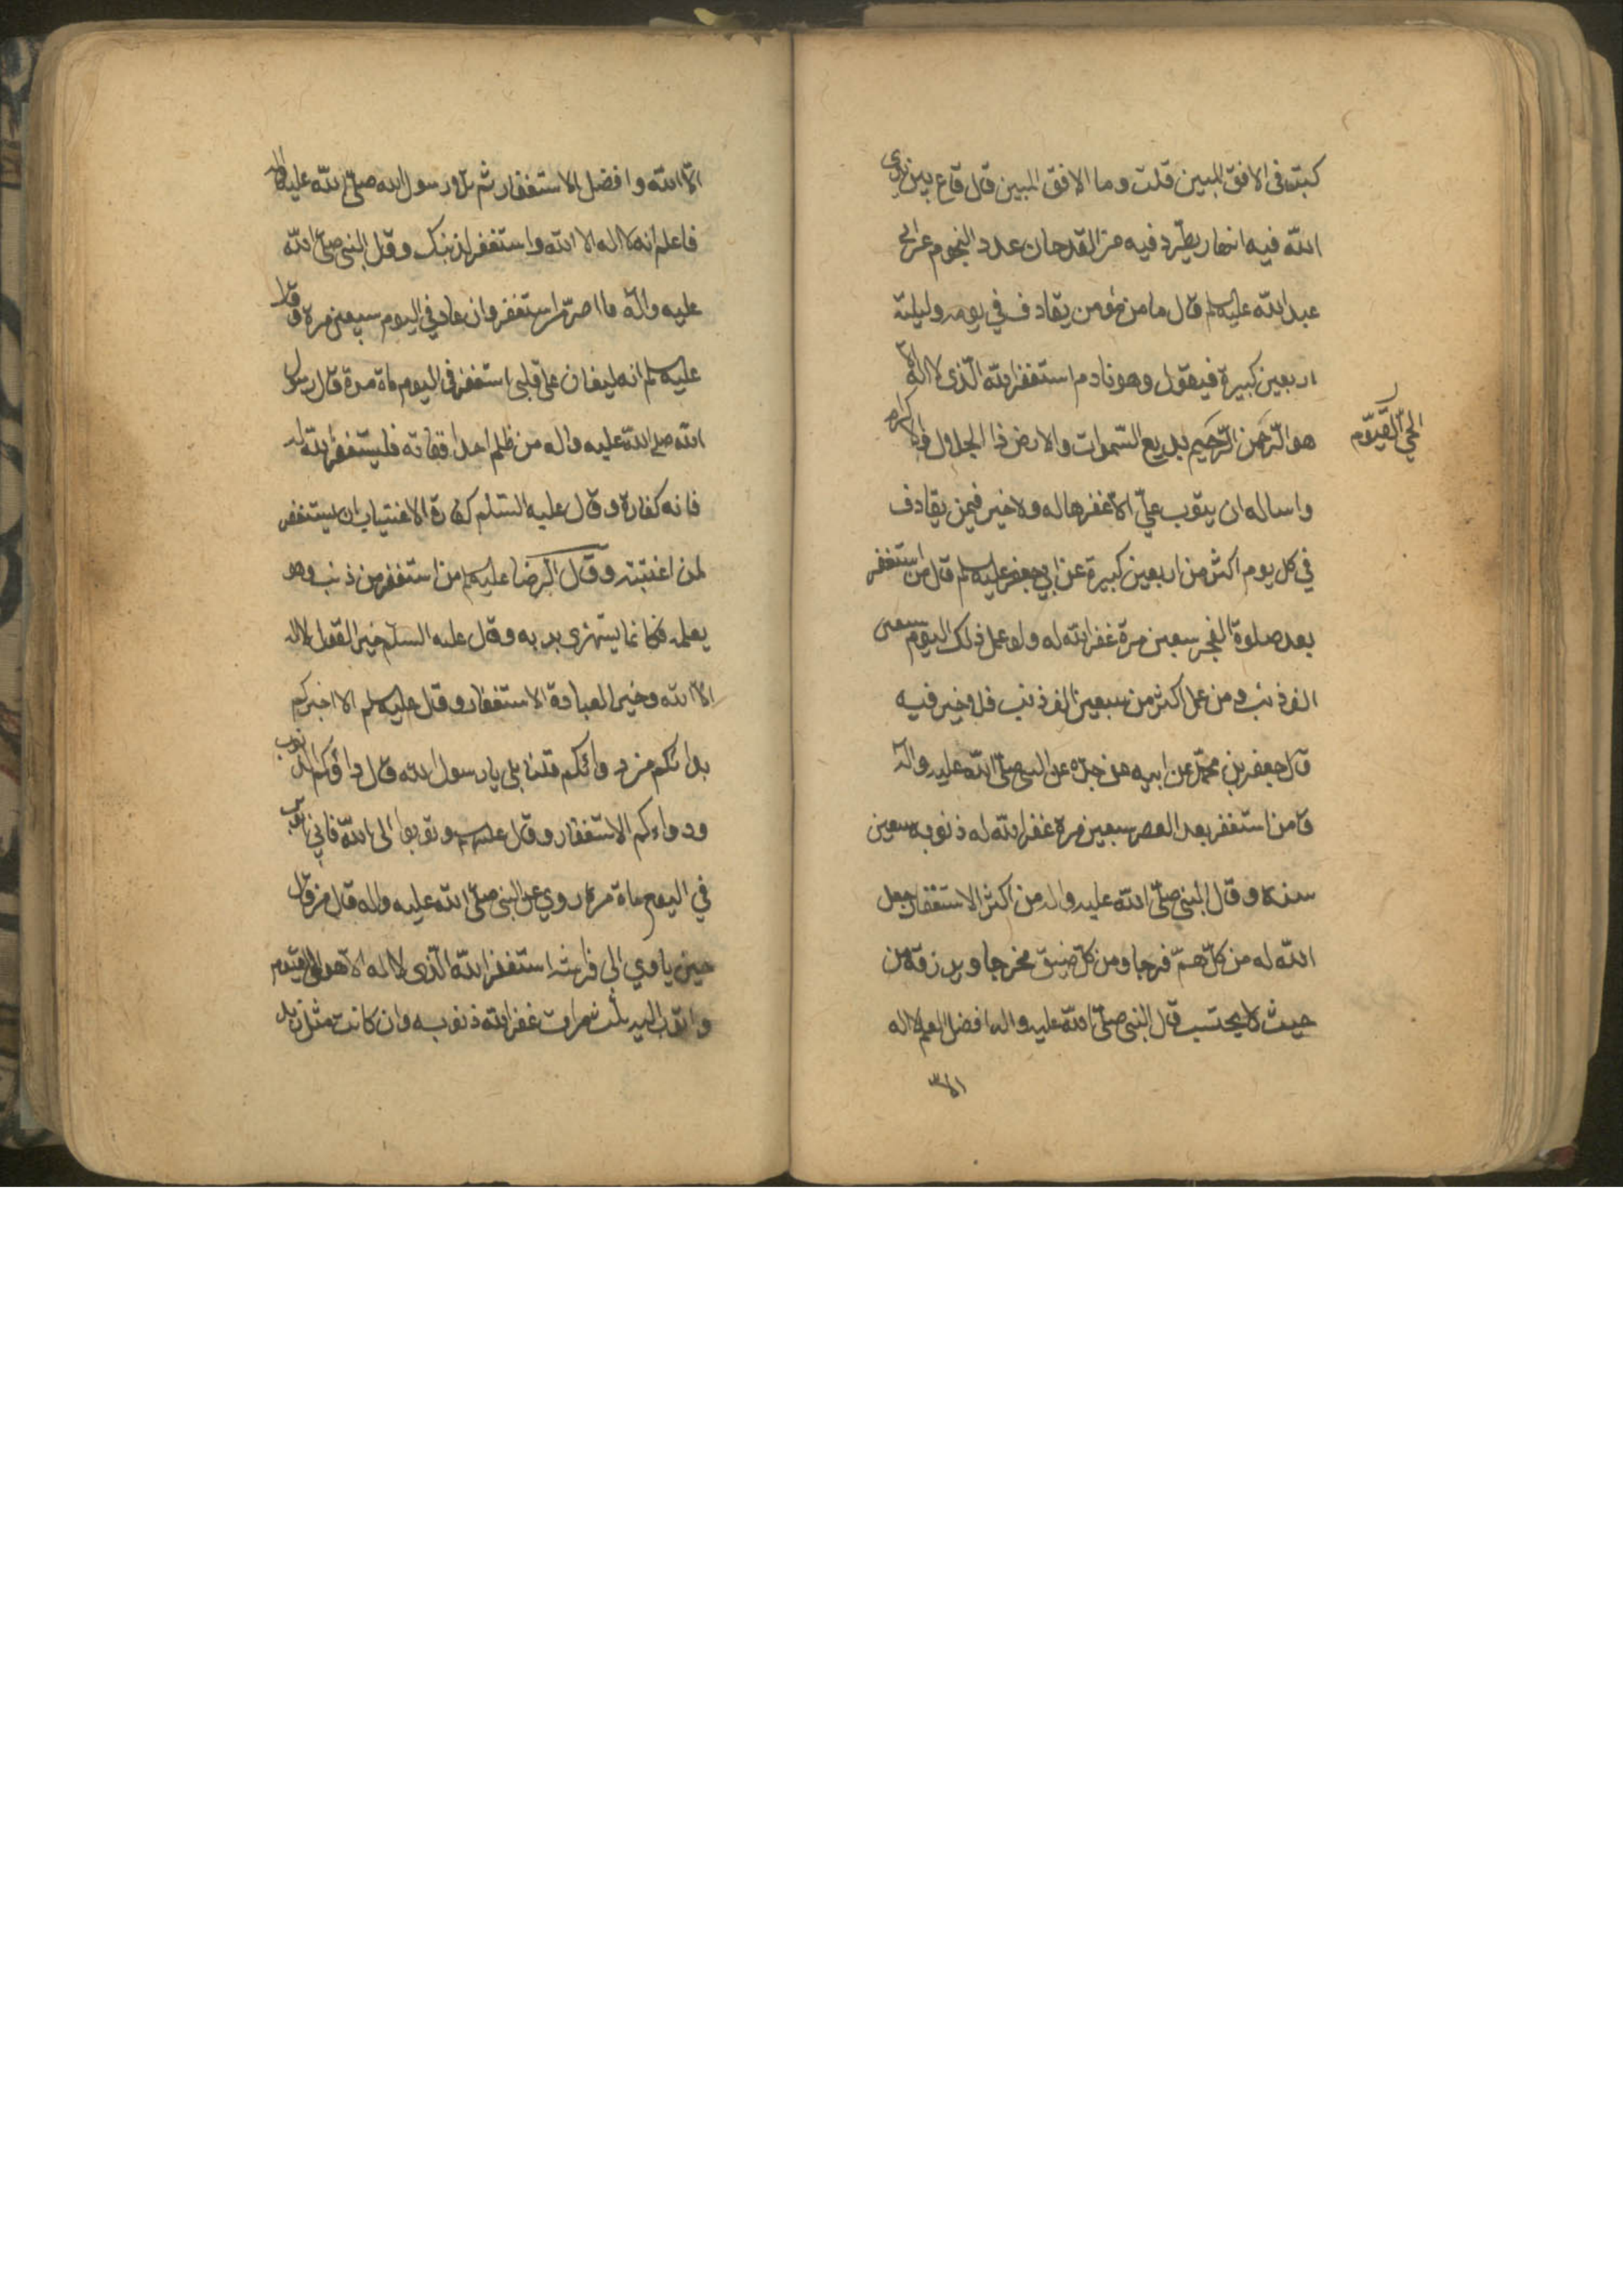 كبته فى الافق المبين قلت وما الافق المبين قال قاع بين يدى
الله فيه انهار يطرد فيه من القدحان عدد النجوم عن ابى
عبد الله عليه السلم قال ما من مؤمن يقادف في يومه وليلته
اربعين كبيرة فيقول وهو نادم استغفر الله الّذى لا اله الا
هو الرّحمن الرّحيم بديع السّموات والارض ذا الجلال والاكرام
الحيّ القيّوم
واساله ان يتوب عليّ الا غفرها له ولا خير فيمن يقادف
في كل يوم اكثر من اربعين كبيرة عن ابي جعفر عليه السلم قال من استغفر
بعد صلوة الفجر سبعين مرة غفر الله له ولو عمل ذلك اليوم سبعين
الف ذنب ومن عمل اكثر من سبعين الف ذنب فلا خير فيه
قال جعفر بن محمّد عن ابيه عن جدّه عن النبى صلّى الله عليه واله
قا من استغفر بعد العصر سبعين مرة غفر الله له ذنوبه سبعين
سنة وقال النبى صلّى الله عليه واله من اكثر الاستغفار جعل
الله له من كلّ همّ فرجا ومن كلّ ضيق مخرجا ويرزقه من
حيث لا يحتسب قال النبى صلّى الله عليه واله افضل العلم لا اله
الا
الاّ الله وافضل الاستغفار ثم تلا رسول الله صلّى الله عليه واله
فاعلم انه لا اله الا الله واستغفر لذنبك وقال النبى صلى الله
عليه واله ما اصرّ من استغفر وان عاد في اليوم سبعين مرة وقال
عليه السلم انه ليغان على قلبى استغفر فى اليوم ماة مرة قال رسول
الله صلى الله عليه واله من ظلم احدا ففاته فليستغفر الله له
فانه كفارة وقال عليه السّلم كفارة الاغتياب ان يستغفر
لمن اغتبته وقال الرضا عليه السلم من استغفر من ذنب وهو
يعلمه فكانما يستهزى بربه وقال عليه السلم خير القول لا اله
الاّ الله وخير العبادة الاستغفار وقال عليه السلم الا اخبركم
بدائكم من دوائكم قلنا بلى يا رسول الله قال داؤكم الذنوب
ودواءكم الاستغفار وقال عليه السلم توبوا الى الله فاني اتوب
في اليوم ماة مرة روي عن النبى صلّى الله عليه واله قال من قال
حين ياوي الى فراشه استغفر الله الّذى لا اله الاّ هو الحى القيوم
واتوب اليه ثلث مرات غفر الله ذنوبه وان كانت مثل زبد